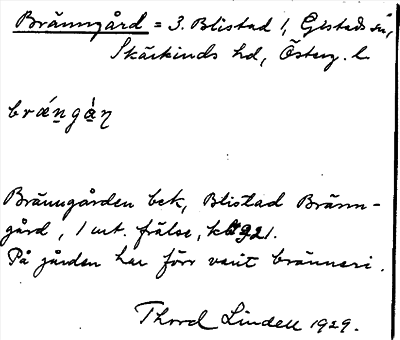 Bränngård = 3. Blistad 1, Gistads sn,
Skärkinds hd, Österg. l.
Bränngården bek, Blistad Bränn-
gård, 1 mt. frälse, 1921.
På gården har förr varit bränneri.
Thord Lindell 1929.